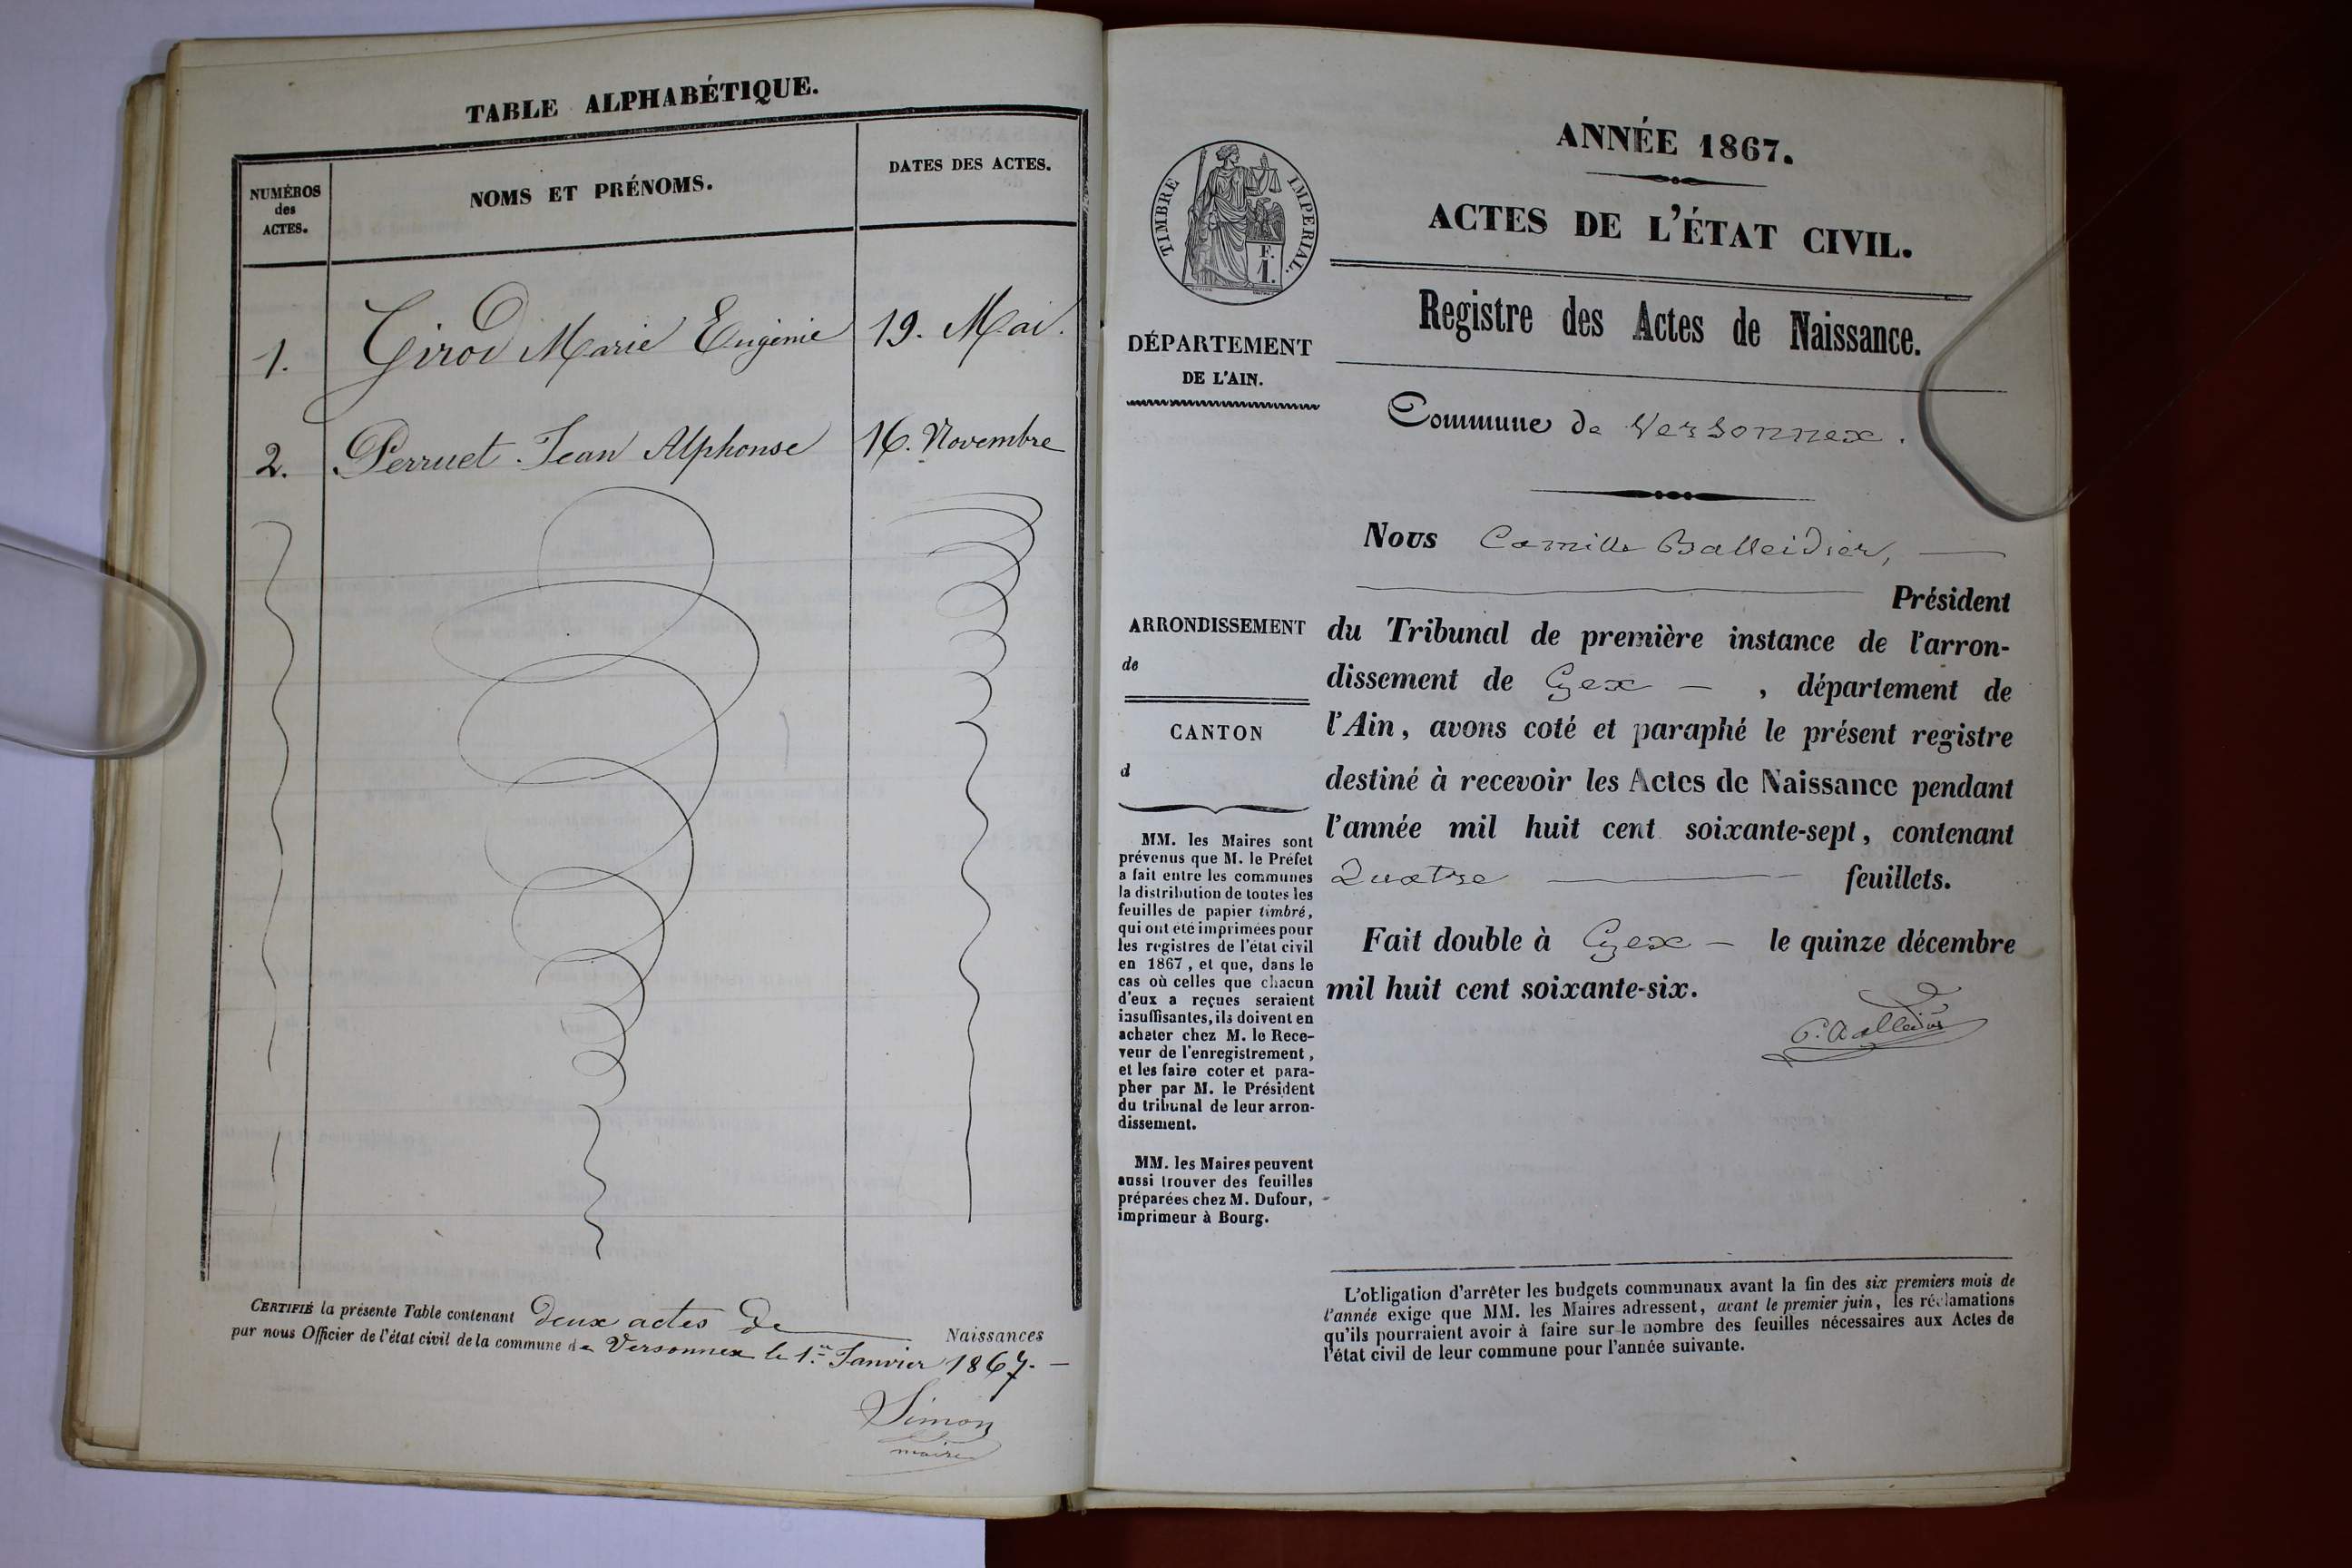 TABLE ALPHABÉTIQUE.
NUMÉROS
des
ACTES.
NOMS ET PRÉNOMS.
DATES DES ACTES.
1. Girod Marie Eugénie 19. Mai.
2. Perruet Jean Alphonse 16. Novembre
CERTIFIÉ la présente Table contenant deux actes de Naissances
par nous Officier de l'état civil de la commune de Versonnex le 1er Janvier 1867.
Simon
maire
TIMBRE IMPERIAL.
F.
1.
DÉPARTEMENT
DE L'AIN.
ARRONDISSEMENT
de
CANTON
d
MM. les Maires sont
prévenus que M. le Préfet
a fait entre les communes
la distribution de toutes les
feuilles de papier timbré,
qui ont été imprimées pour
les registres de l'état civil
en 1867, et que, dans le
cas où celles que chacun
d'eux a reçues seraient
insuffisantes, ils doivent en
acheter chez M. le Rece-
veur de l'enregistrement,
et les faire coter et para-
pher par M. le Président
du tribunal de leur arron-
dissement.
MM. les Maires peuvent
aussi trouver des feuilles
préparées chez M. Dufour,
imprimeur à Bourg.
ANNÉE 1867.
ACTES DE L'ÉTAT CIVIL.
Registre des Actes de Naissance.
Commune de Versonnex.
Nous Camille Balleidier,
Président
du Tribunal de première instance de l'arron-
dissement de Gex - , département de
l'Ain, avons coté et paraphé le présent registre
destiné à recevoir les Actes de Naissance pendant
l'année mil huit cent soixante-sept, contenant
Quatre feuillets.
Fait double à Gex - le quinze décembre
mil huit cent soixante-six.
C. Balleidier
L'obligation d'arrêter les budgets communaux avant la fin des six premiers mois de
l'année exige que MM. les Maires adressent, avant le premier juin, les réclamations
qu'ils pourraient avoir à faire sur le nombre des feuilles nécessaires aux Actes de
l'état civil de leur commune pour l'année suivante.